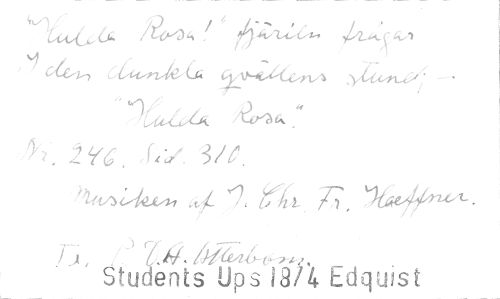 "Hulda Rosa!" fjäriln frågar
I den dunkla qvällens stund; —
"Hulda Rosa".
Nr. 246. Sid. 310.
Musiken af J. Chr. Fr. Haeffner.
P. D. A. Atterbom.
Students Ups 18/4 Edquist